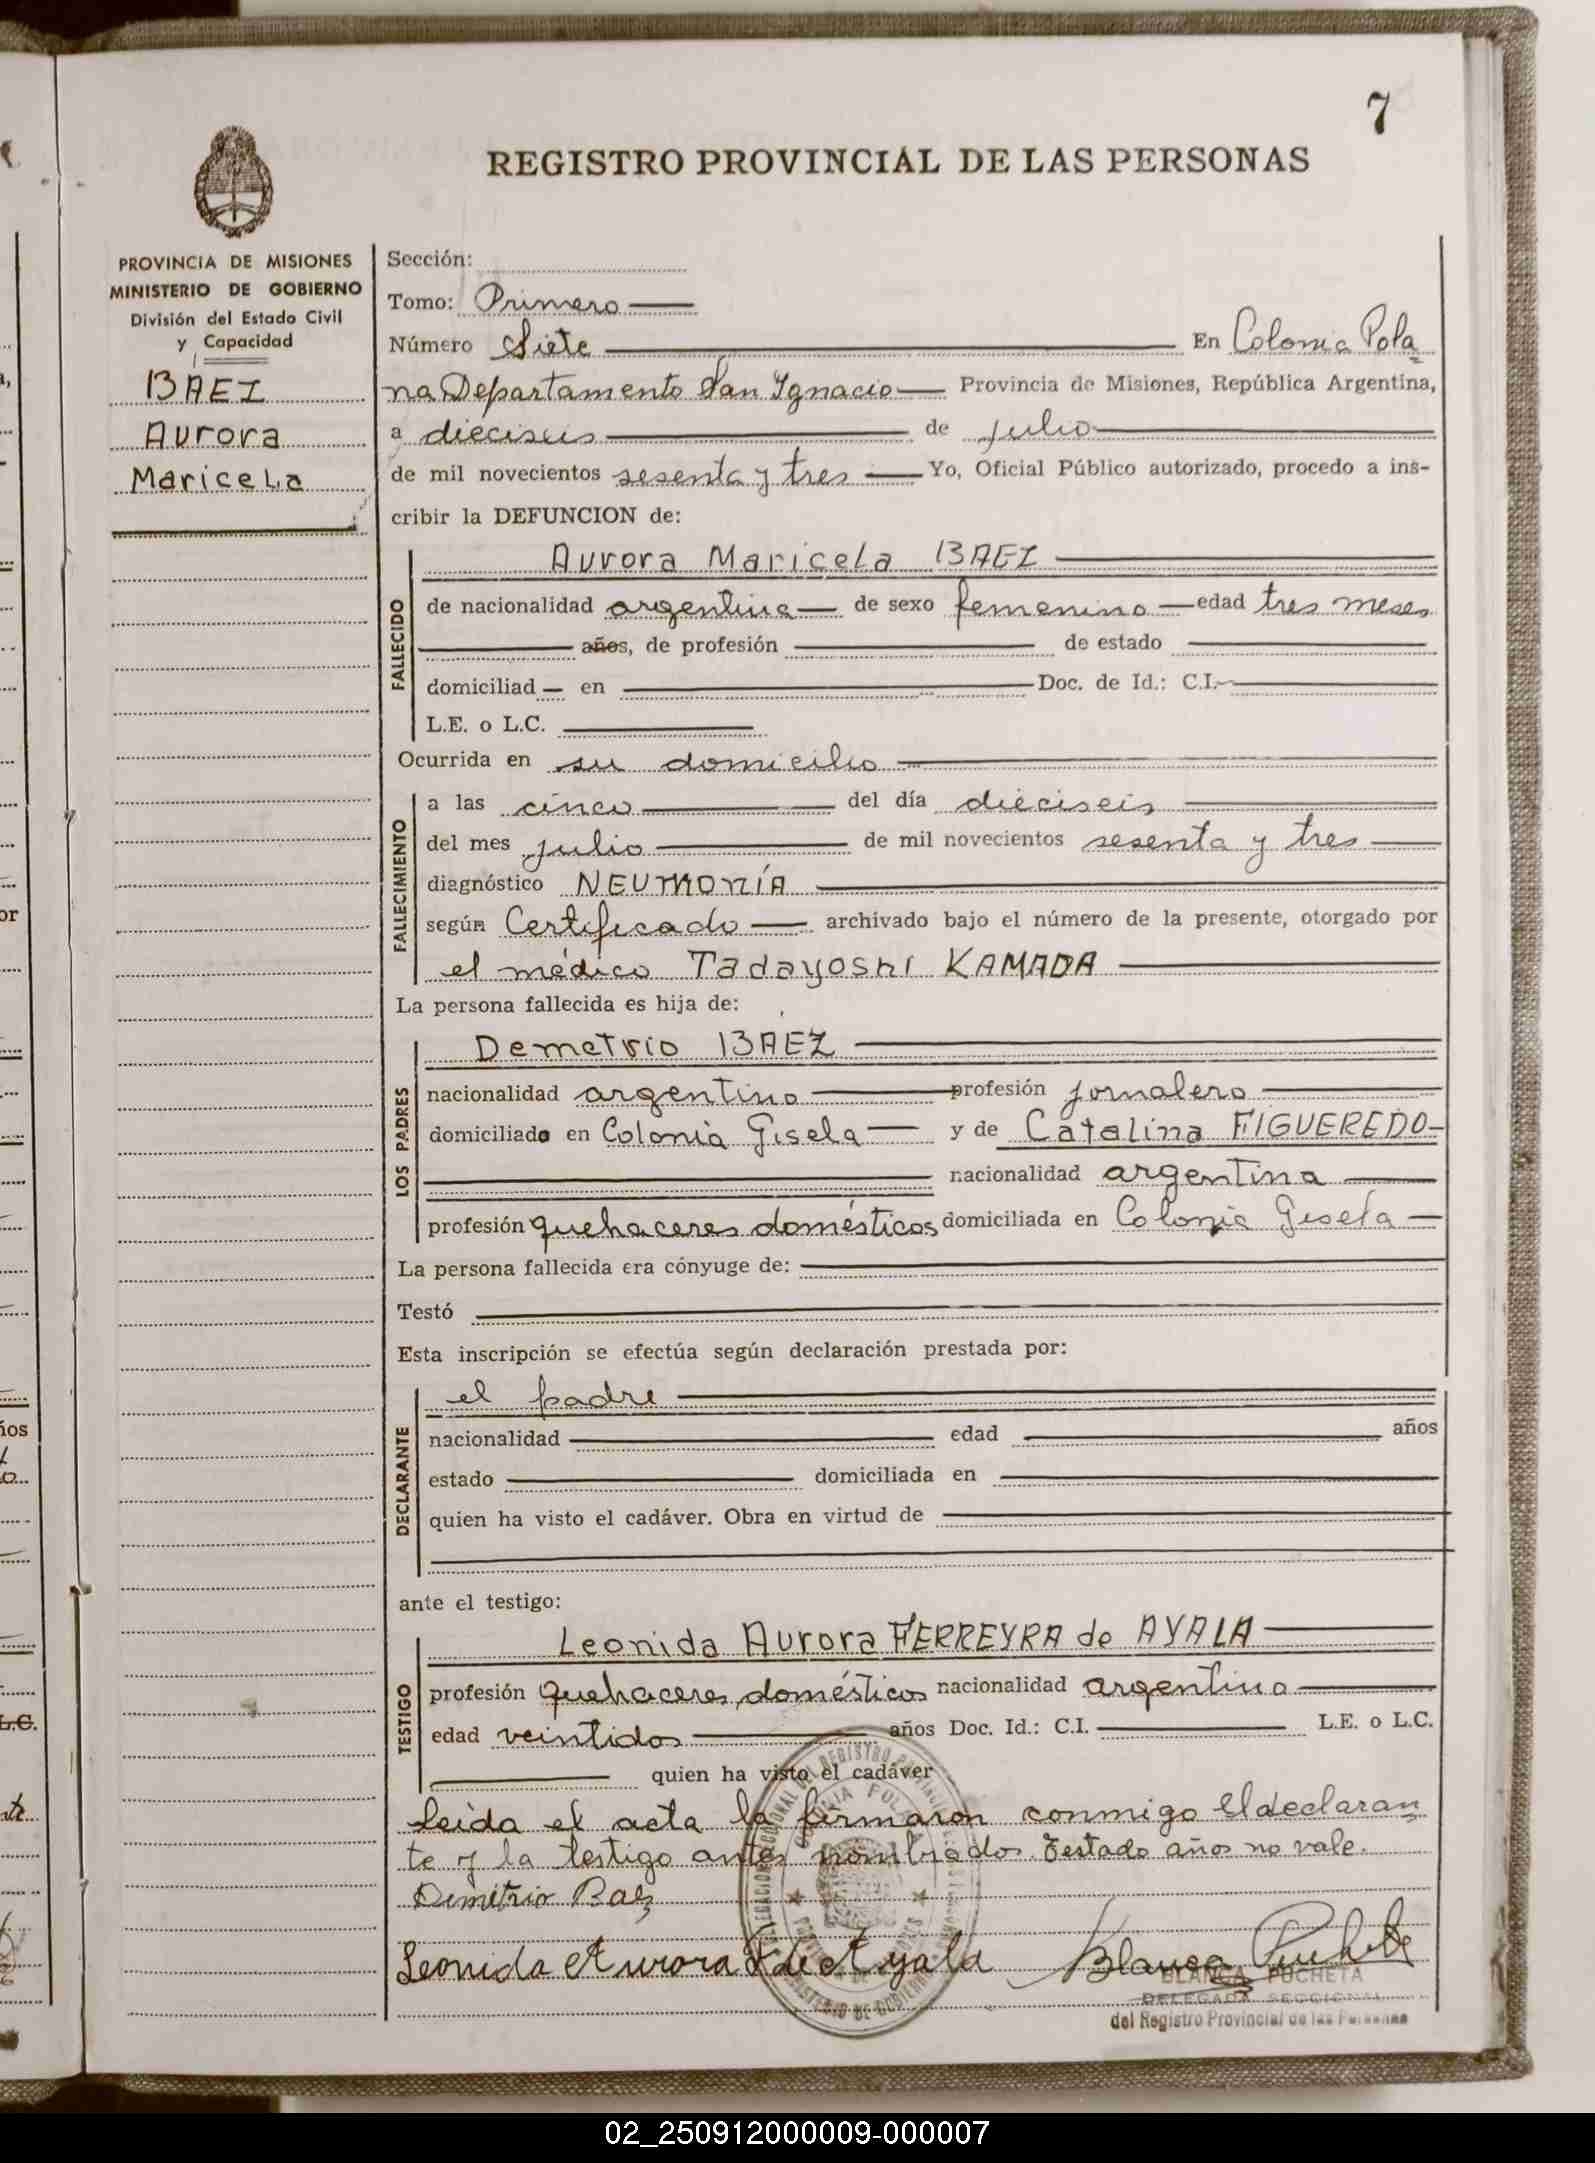 7
REGISTRO PROVINCIAL DE LAS PERSONAS
PROVINCIA DE MISIONES
MINISTERIO DE GOBIERNO
División del Estado Civil
y Capacidad
BAEZ
Aurora
Maricela
Sección:
Tomo: Primero
Número Siete En Colonia Pola
na Departamento San Ignacio Provincia de Misiones, República Argentina,
a dieciseis de julio
de mil novecientos sesenta y tres Yo, Oficial Público autorizado, procedo a ins-
cribir la DEFUNCION de:
FALLECIDO
Aurora Maricela BAEZ
de nacionalidad argentina de sexo femenino edad tres meses
años, de profesión de estado
domiciliad en Doc. de Id.: C.I.
L.E. o L.C.
Ocurrida en su domicilio
FALLECIMIENTO
a las cinco del día dieciseis
del mes julio de mil novecientos sesenta y tres
diagnóstico NEUMONÍA
según Certificado archivado bajo el número de la presente, otorgado por
el médico Tadayoshi KAMADA
La persona fallecida es hija de:
LOS PADRES
Demetrio BAEZ
nacionalidad argentino profesión jornalero
domiciliado en Colonia Gisela y de Catalina FIGUEREDO-
nacionalidad argentina
profesión quehaceres domésticos domiciliada en Colonia Gisela
La persona fallecida era cónyuge de:
Testó
Esta inscripción se efectúa según declaración prestada por:
DECLARANTE
el padre
nacionalidad edad años
estado domiciliada en
quien ha visto el cadáver. Obra en virtud de
ante el testigo:
TESTIGO
Leonida Aurora FERREYRA de AYALA
profesión quehaceres domésticos nacionalidad argentina
edad veintidos años Doc. Id.: C.I. L.E. o L.C.
quien ha visto el cadáver
Leida el acta la firmaron conmigo el declaran
te y la testigo antes nombrados. Testado años no vale.
Demetrio Baez
Leonida Aurora F de Ayala Blanca Pucheta
BLANCA PUCHETA
DELEGADA SECCIONAL
del Registro Provincial de las Personas
02_250912000009-000007